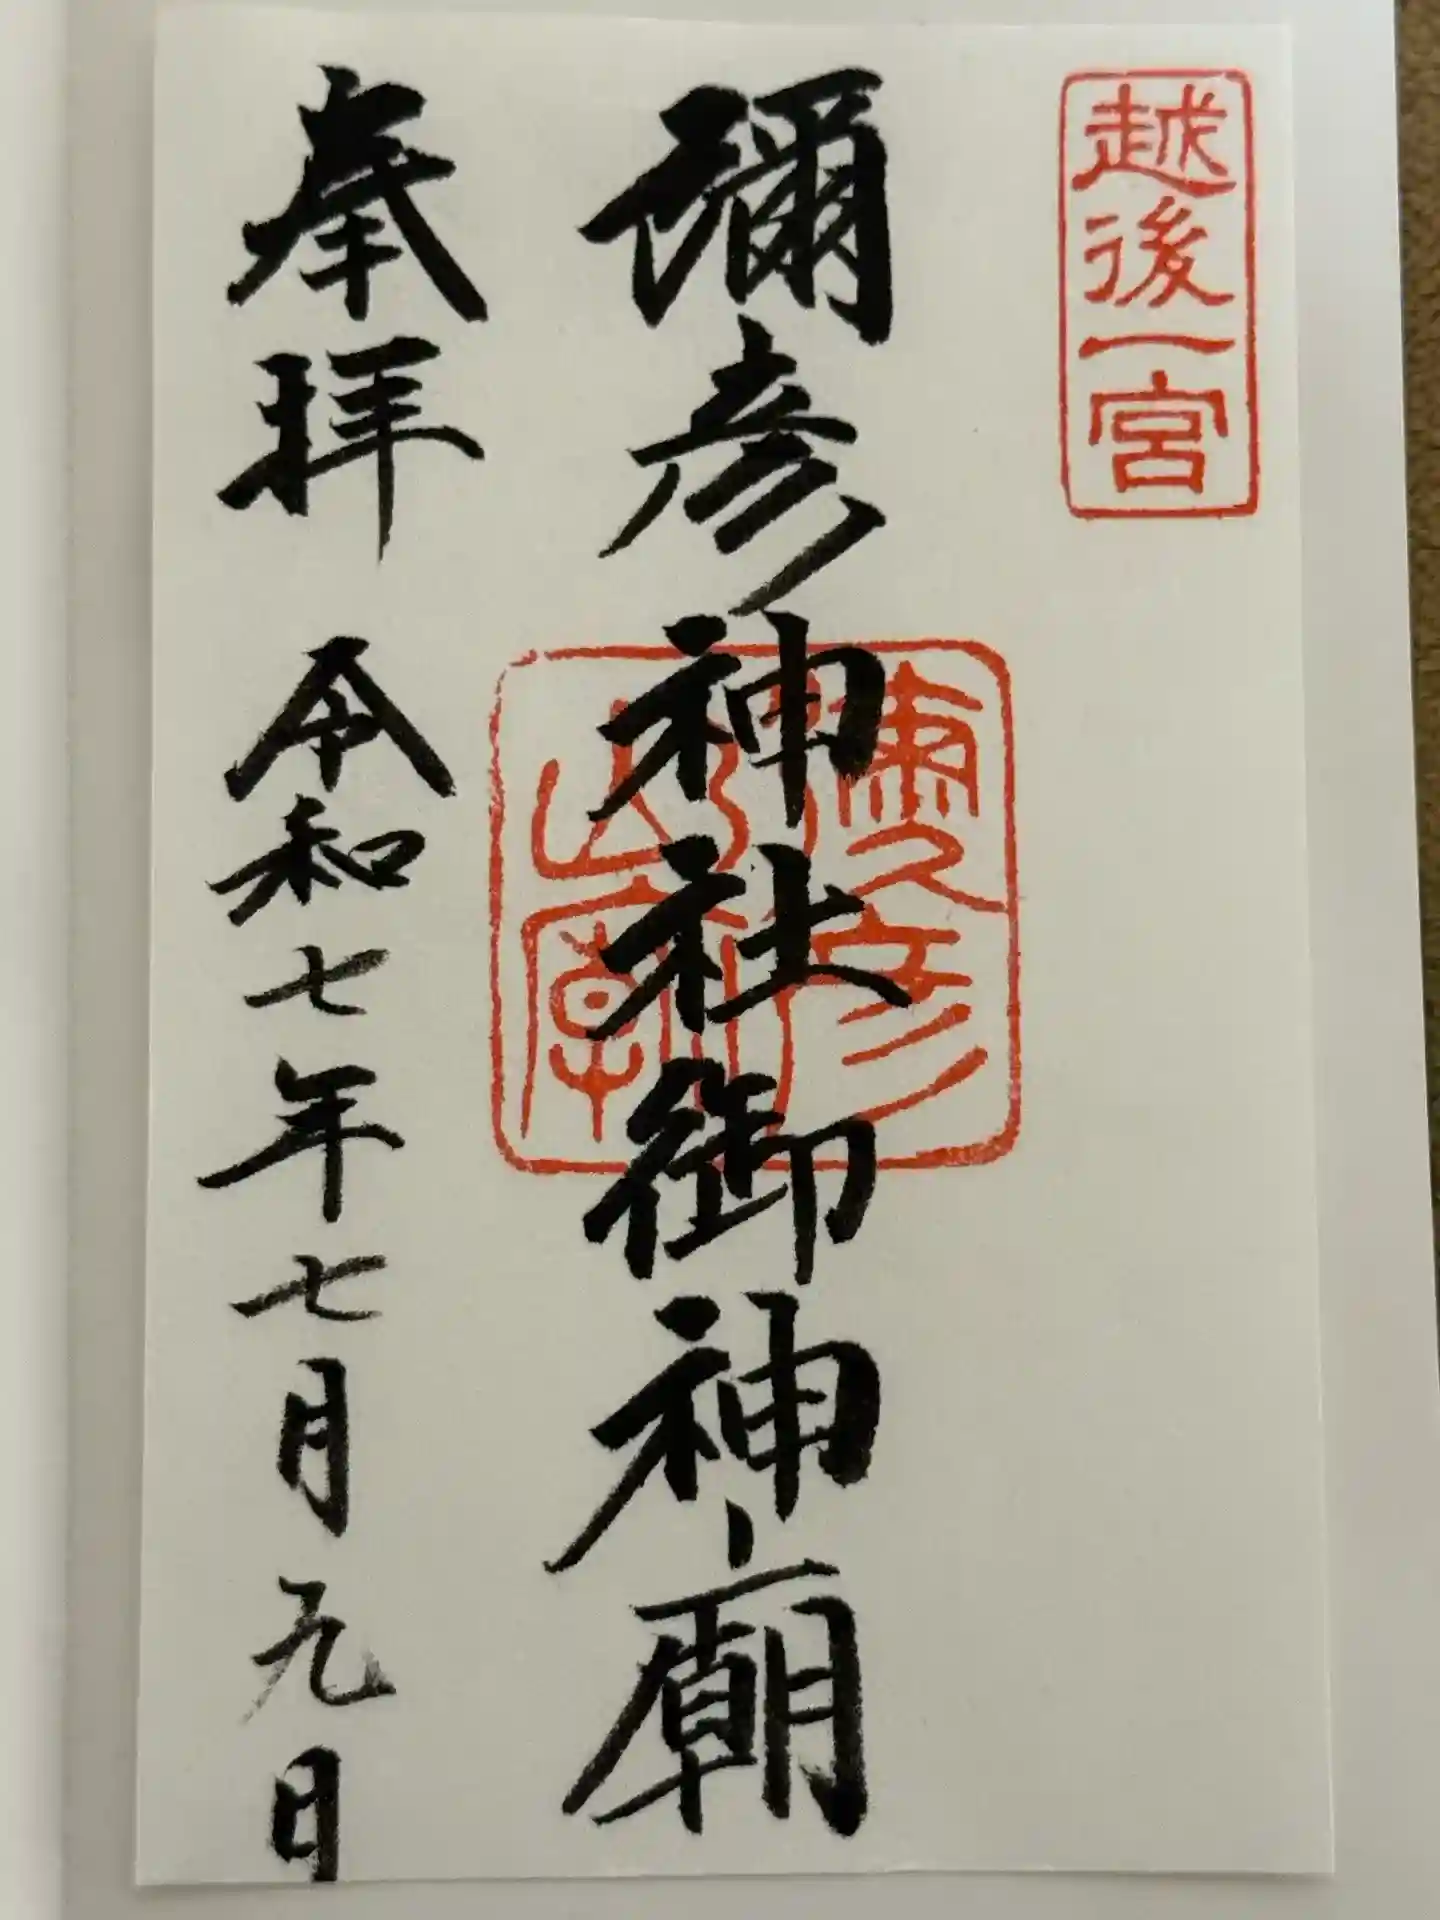 越後一宮
彌彦神社御神廟
奉拝 令和七年七月九日